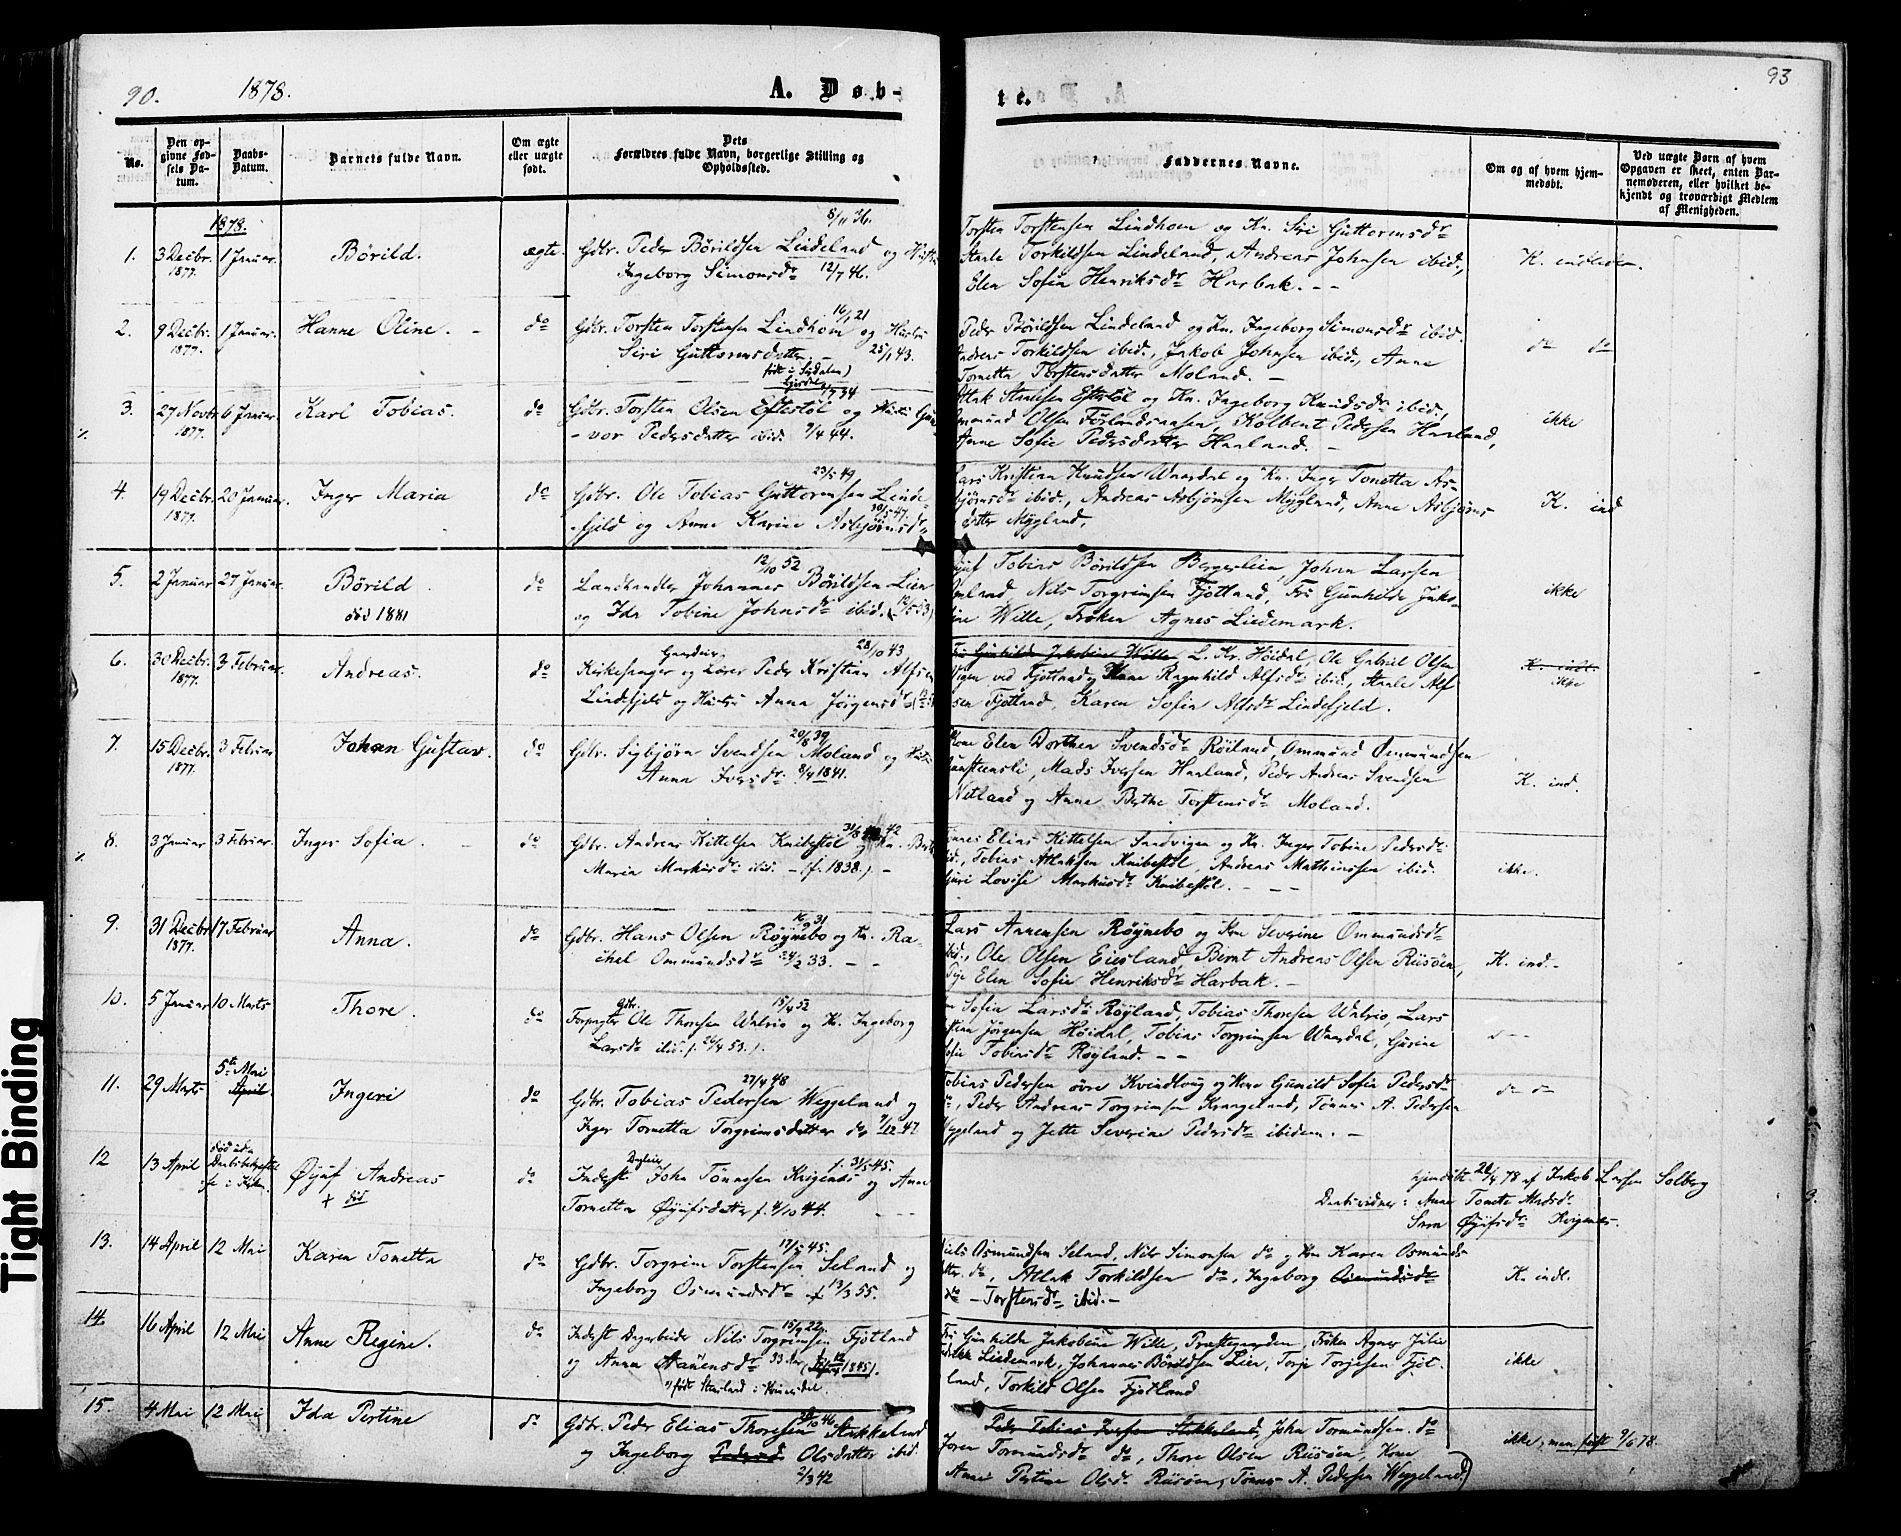 90. 1878. A. Døb-
No.
Den op-
givne Fød-
sels Da-
tum.
Daabs-
Datum.
Barnets fulde Navn.
Om ægte
eller uægte
født.
Dets
Forældres fulde Navn, borgerlige Stilling og
Opholdssted.
1878.
1. 3 Decbr. 1877. 1 Januar. Børild. ægte.
8/11 36.
Gdbr. Peder Børildsen Lindeland og Hustru
Ingeborg Simonsdr 12/7 46.
2. 9 Decbr. 1877. 1 Januar. Hanne Oline. do
16/1 21
Gdbr. Torsten Torstensen Lindhom og Hustru
Siri Guttormsdatter. 25/1 43.
født i Sirdalen)
3. 27 Novbr. 1877. 6 Januar. Karl Tobias. do
Gdbr. Torsten Olsen Eftestøl og Hustru Gun-
-vor Pedersdatter ibid. 9/4 44.
4. 19 Decbr. 1877. 20 Januar. Inger Maria do
23/5 49
Gdbr. Ole Tobias Guttormsen Linde-
30/5 47.
fjeld og Anne Karine Asbjørnsdr
5. 2 Januar 27 Januar. Børild. død 1881 do
12/10 52
Landhandler Johannes Børildsen Lien
og Ida Tobine Johnsdr ibid.
6. 30 Decbr. 1877. 3 Februar. Andreas. do
Gaardeier 28/10 43
Kirkesanger og Lærer Peder Kristian Alfsen
Lindefjeld og Hustru Anna Jørgensdr
7. 15 Decbr. 1877. 3 Februar Johan Gustav. do
20/8 39
Gdbr. Sigbjørn Svendsen Moland og Hustru
Anna Iversdr. 8/4 1841.
8. 3 Januar 3 Februar. Inger Sofia. do
Gdbr. Andreas Kittelsen Knibestøl og Kn. Berthe
Maria Markusdr ibid. - (f. 1838.) -
9. 31 Decbr 1877. 17 Februar Anna. do
16/9 31
Gdbr. Hans Olsen Røynebo og Kn. Ra-
chel Ommundsdr 24/2 33. - -
10. 5 Januar 10 Marts Thore. do
Gdbr. 15/4 52
Forpagter Ole Thoresen Walrio og Kn. Ingeborg
Larsdr ibid. (26/4 53.).
11. 29 Marts 5te Mai April. Ingeri do
27/4 48
Gdbr. Tobias Pedersen Weggeland og
Inger Tornetta Torgrimsdatter do 9/12 47
12 13 April Øyuf Andreas + død do
f. 31/5 45.
Inderst John Tønnesen Kvigenes og Anne
Tornetta Øyufsdatter f. 4/10 44.
13. 14 April 12 Mai Karen Tonetta do
17/5 45.
Gdbr. Torgrim Torstensen Seland og
Ingeborg Osmundsdr f 13/3 55.
14. 16 April 12 Mai Anne Regine. do
15/9 22
Inderst Dagarbeider Nils Torgrimsen Fjotland
og Anna Aanensdr
15. 4 Mai 12 Mai Ida Pertine do
Gdbr. Peder Elias Thoresen Stokkeland
og Ingeborg Pedersd Olsdatter ibid.
2/3 42
te. 93
Faddernes Navne.
Om og af hvem hjem-
medøbt.
Ved uægte Børn af hvem
Opgaven er skeet, enten Bar-
nemoderen, eller hvilket be-
kjendt og troværdigt Medlem
af Menigheden.
Torsten Torstensen Lindhom og Kn. Siri Guttormsdr
Staale Torkildsen Lindeland, Andreas Johnsen ibid., K. indleder.
Elen Sofia Henriksdr Harbak. - -
Peder Børildsen Lindeland og Kn. Ingeborg Simonsdr ibid.
Andreas Torkildsen ibid., Jakob Johnsen ibid., Anne do do
Tornetta Torstensdatter Moland. -
Atlak Staalesen Eftestøl og Kn. Ingeborg Knudsdr ibid.,
Ommund Olsen Førlandsaasen, Kolbent Pedersen Haaland, ikke
Anne Sofie Pedersdatter Haaland. -
Lars Kristian Knudsen Waardal og Kn. Inger Tonetta As-
bjørnsdr ibid., Andreas Asbjørnsen Mygland, Anne Asbjørns- K. ind
datter Mygland.
Tobias Børildsen Bergerlein, Johan Larsen
Nils Torgrimsen Fjotland, Fru Gunhilde Jako- ikke
bine Wille, Frøken Agnes Liedemark.
Fru Gunhilde Jakobine Wille L. Kr. Høidal, Ole Gabriel Olsen
Vigen ved Fjotland og Kone Ragnhild Alfsdr ibid., Staale Alf- K. indl. ikke
sen Fjotland, Karen Sofia Alfsdr Lindefjeld.
Kone Elen Dorthea Svendsdr Røiland, Ommund Ommundsen
Mads Iversen Haaland, Peder Andreas Svendsen K. ind.
Netland og Anne Berthe Torstensdr Moland.
Tønnes Elias Kittelsen Sandvigen og Kn. Inger Tobine Pedersdr
ibid., Tobias Atlaksen Knibestøl, Andreas Mathiassen ibid. ikke.
Guri Lovise Markusdr Knibestøl. - - -
Lars Aanensen Røynebo og Kone Severine Ommundsdr
ibid., Ole Olsen Eiesland, Bernt Andreas Olsen Risøen, K. ind. -
Pige Elen Sofie Henriksdr Harbak. -
Sofia Larsdr Røyland, Tobias Thoresen Walrio, Lars
Jørgensen Høidal, Tobias Torgrimsen Waardal, Gurine
Tobiasdr Røyland. - -
Tobias Pedersen øvre Kvinlaug og Kone Gunild Sofia Pedersdr
Peder Andreas Torgrimsen Krageland, Tønnes A. Pedersen do do
Weggeland og Jette Severine Pedersdr ibidem. -
hjemdøbt 20/4 78 af Jakob Larsen Solberg
Daabsvidner: Anne Tonette Madsdr
Øyufsdr Kvigenes.
Niels Osmundsen Seland, Nils Simonsen do og Kone Karen Osmunds-
datter do, Atlak Torkildsen do, Ingeborg Osmundsdr K. indl.
do - Torstensdr ibid. -
Fru Gunhilde Jakobine Wille, Præstegaarden, Frøken Agnes Julie
Liedemark, Johannes Børildsen Lien, Torje Torjesen Fjot- ikke
land, Torkild Olsen Fjotland
Peder Tobias Iversen Stokkeland, John Tormundsen do
Joren Tormundsdr do, Thore Olsen Risøen, Kone ikke, men først 9/6 78.
Anne Pertine Olsdr Risøen, Tønnes A. Pedersen Weggeland.)
Tight Binding